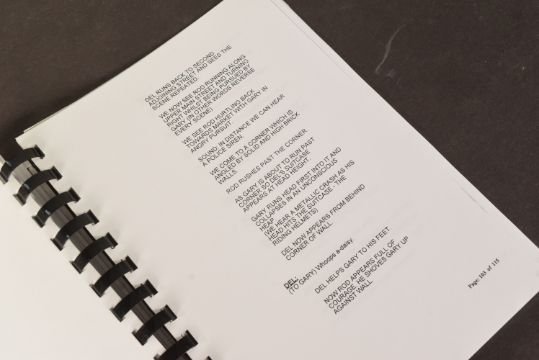 DEL RUNS BACK TO SECOND
ADJOINING STREET AND SEES THE
SCENE REPEATED.
WE NOW SEE ROD RUNNING ALONG
UPPER MAIN STREET AND TURNING
RIGHT WHILST BEING PURSUED BY
GARY (IN OTHER WORDS REVERSE
EVERY SCENE)
WE SEE ROD HURTLING BACK
TOWARDS MARKET WITH GARY IN
ANGRY PURSUIT
SOUND: IN DISTANCE WE CAN HEAR
A POLICE SIREN.
WE COME TO A CORNER WHICH IS
ANGLED BY SOLID AND HIGH BRICK
WALLS.
ROD RUSHES PAST THE CORNER
AS GARY IS ABOUT TO RUN PAST
CORNER, SO DEL'S SUITCASE
APPEARS AT HEAD HEIGHT.
GARY RUNS HEAD FIRST INTO IT AND
COLLAPSES IN AN UNCONSCIOUS
HEAP
(WE HEAR A METALLIC CRASH AS HIS
HEAD HITS THE SUITCASE. THE
RIDING HELMETS)
DEL NOW APPEARS FROM BEHIND
CORNER OF WALL.
DEL:
(TO GARY) Whoops a-daisy.
DEL HELPS GARY TO HIS FEET
NOW ROD APPEARS FULL OF
COURAGE. HE SHOVES GARY UP
AGAINST WALL
Page: 103 of 115